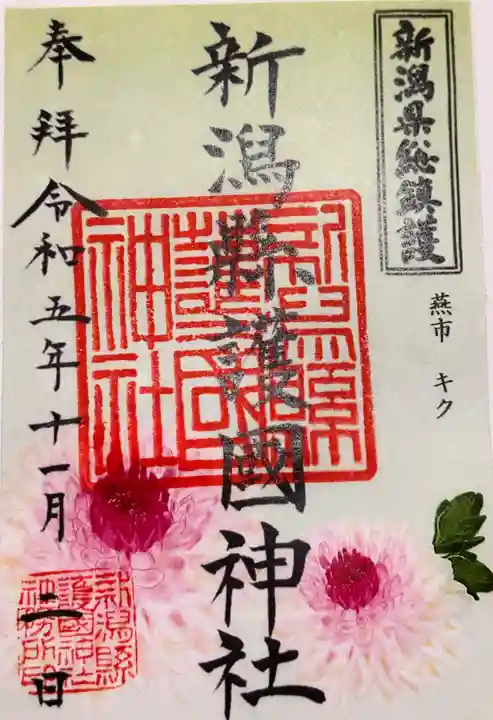 新潟県総鎮護
燕市 キク
新潟縣護國神社
奉拝 令和五年十一月二日
新潟縣護國神社
新潟縣護國神社社務所印